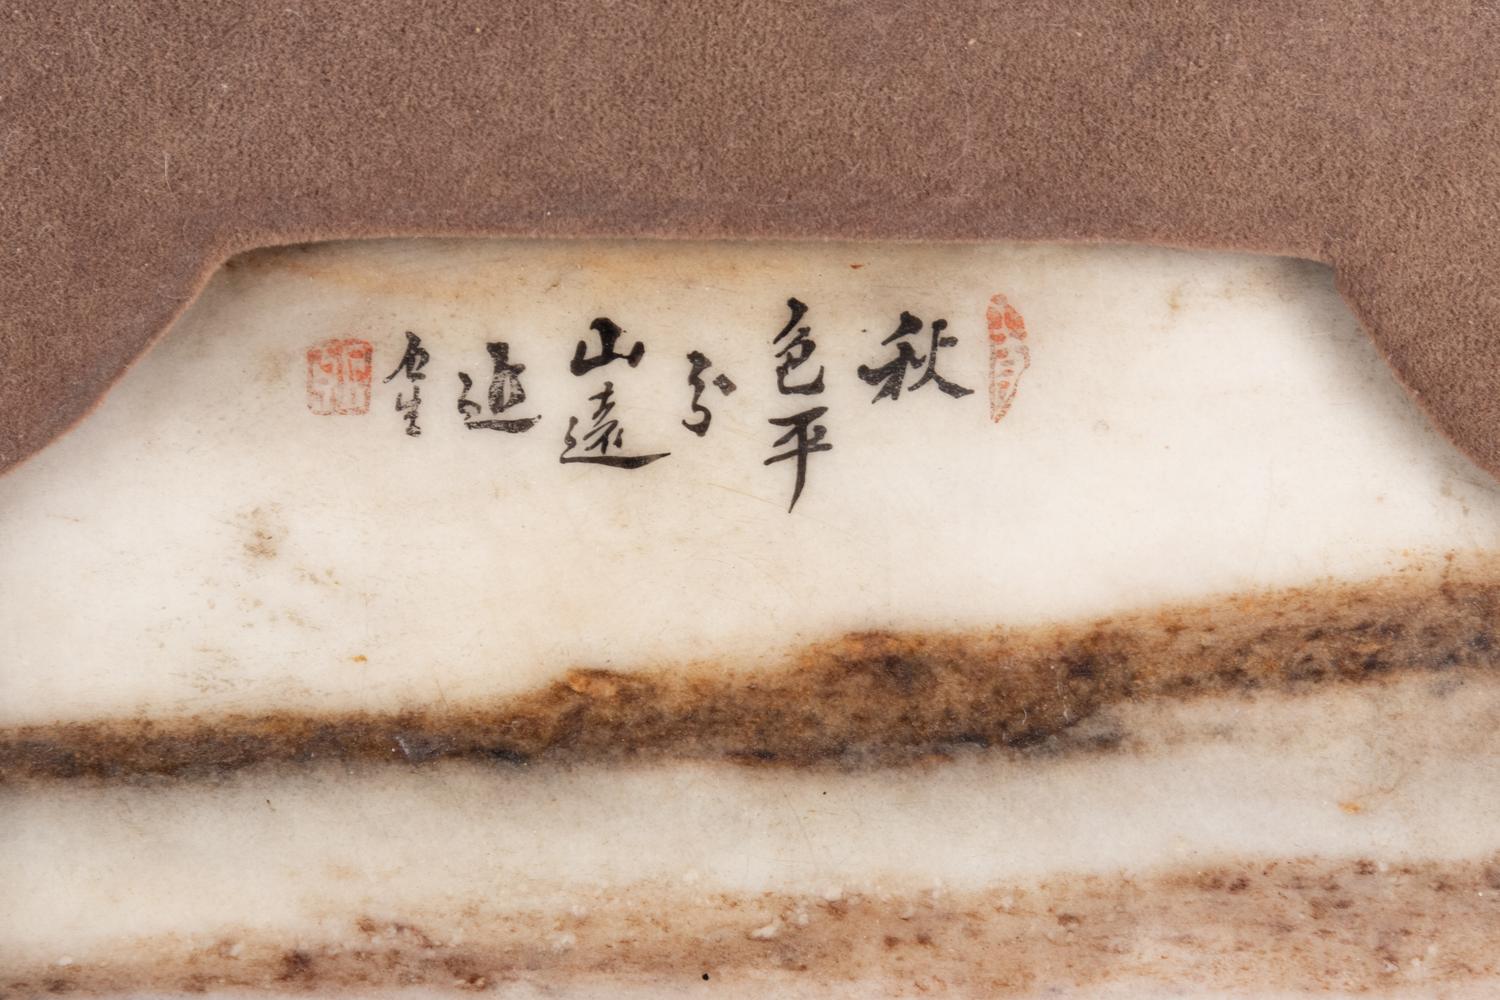 秋
色平
分
山遠
近
石生